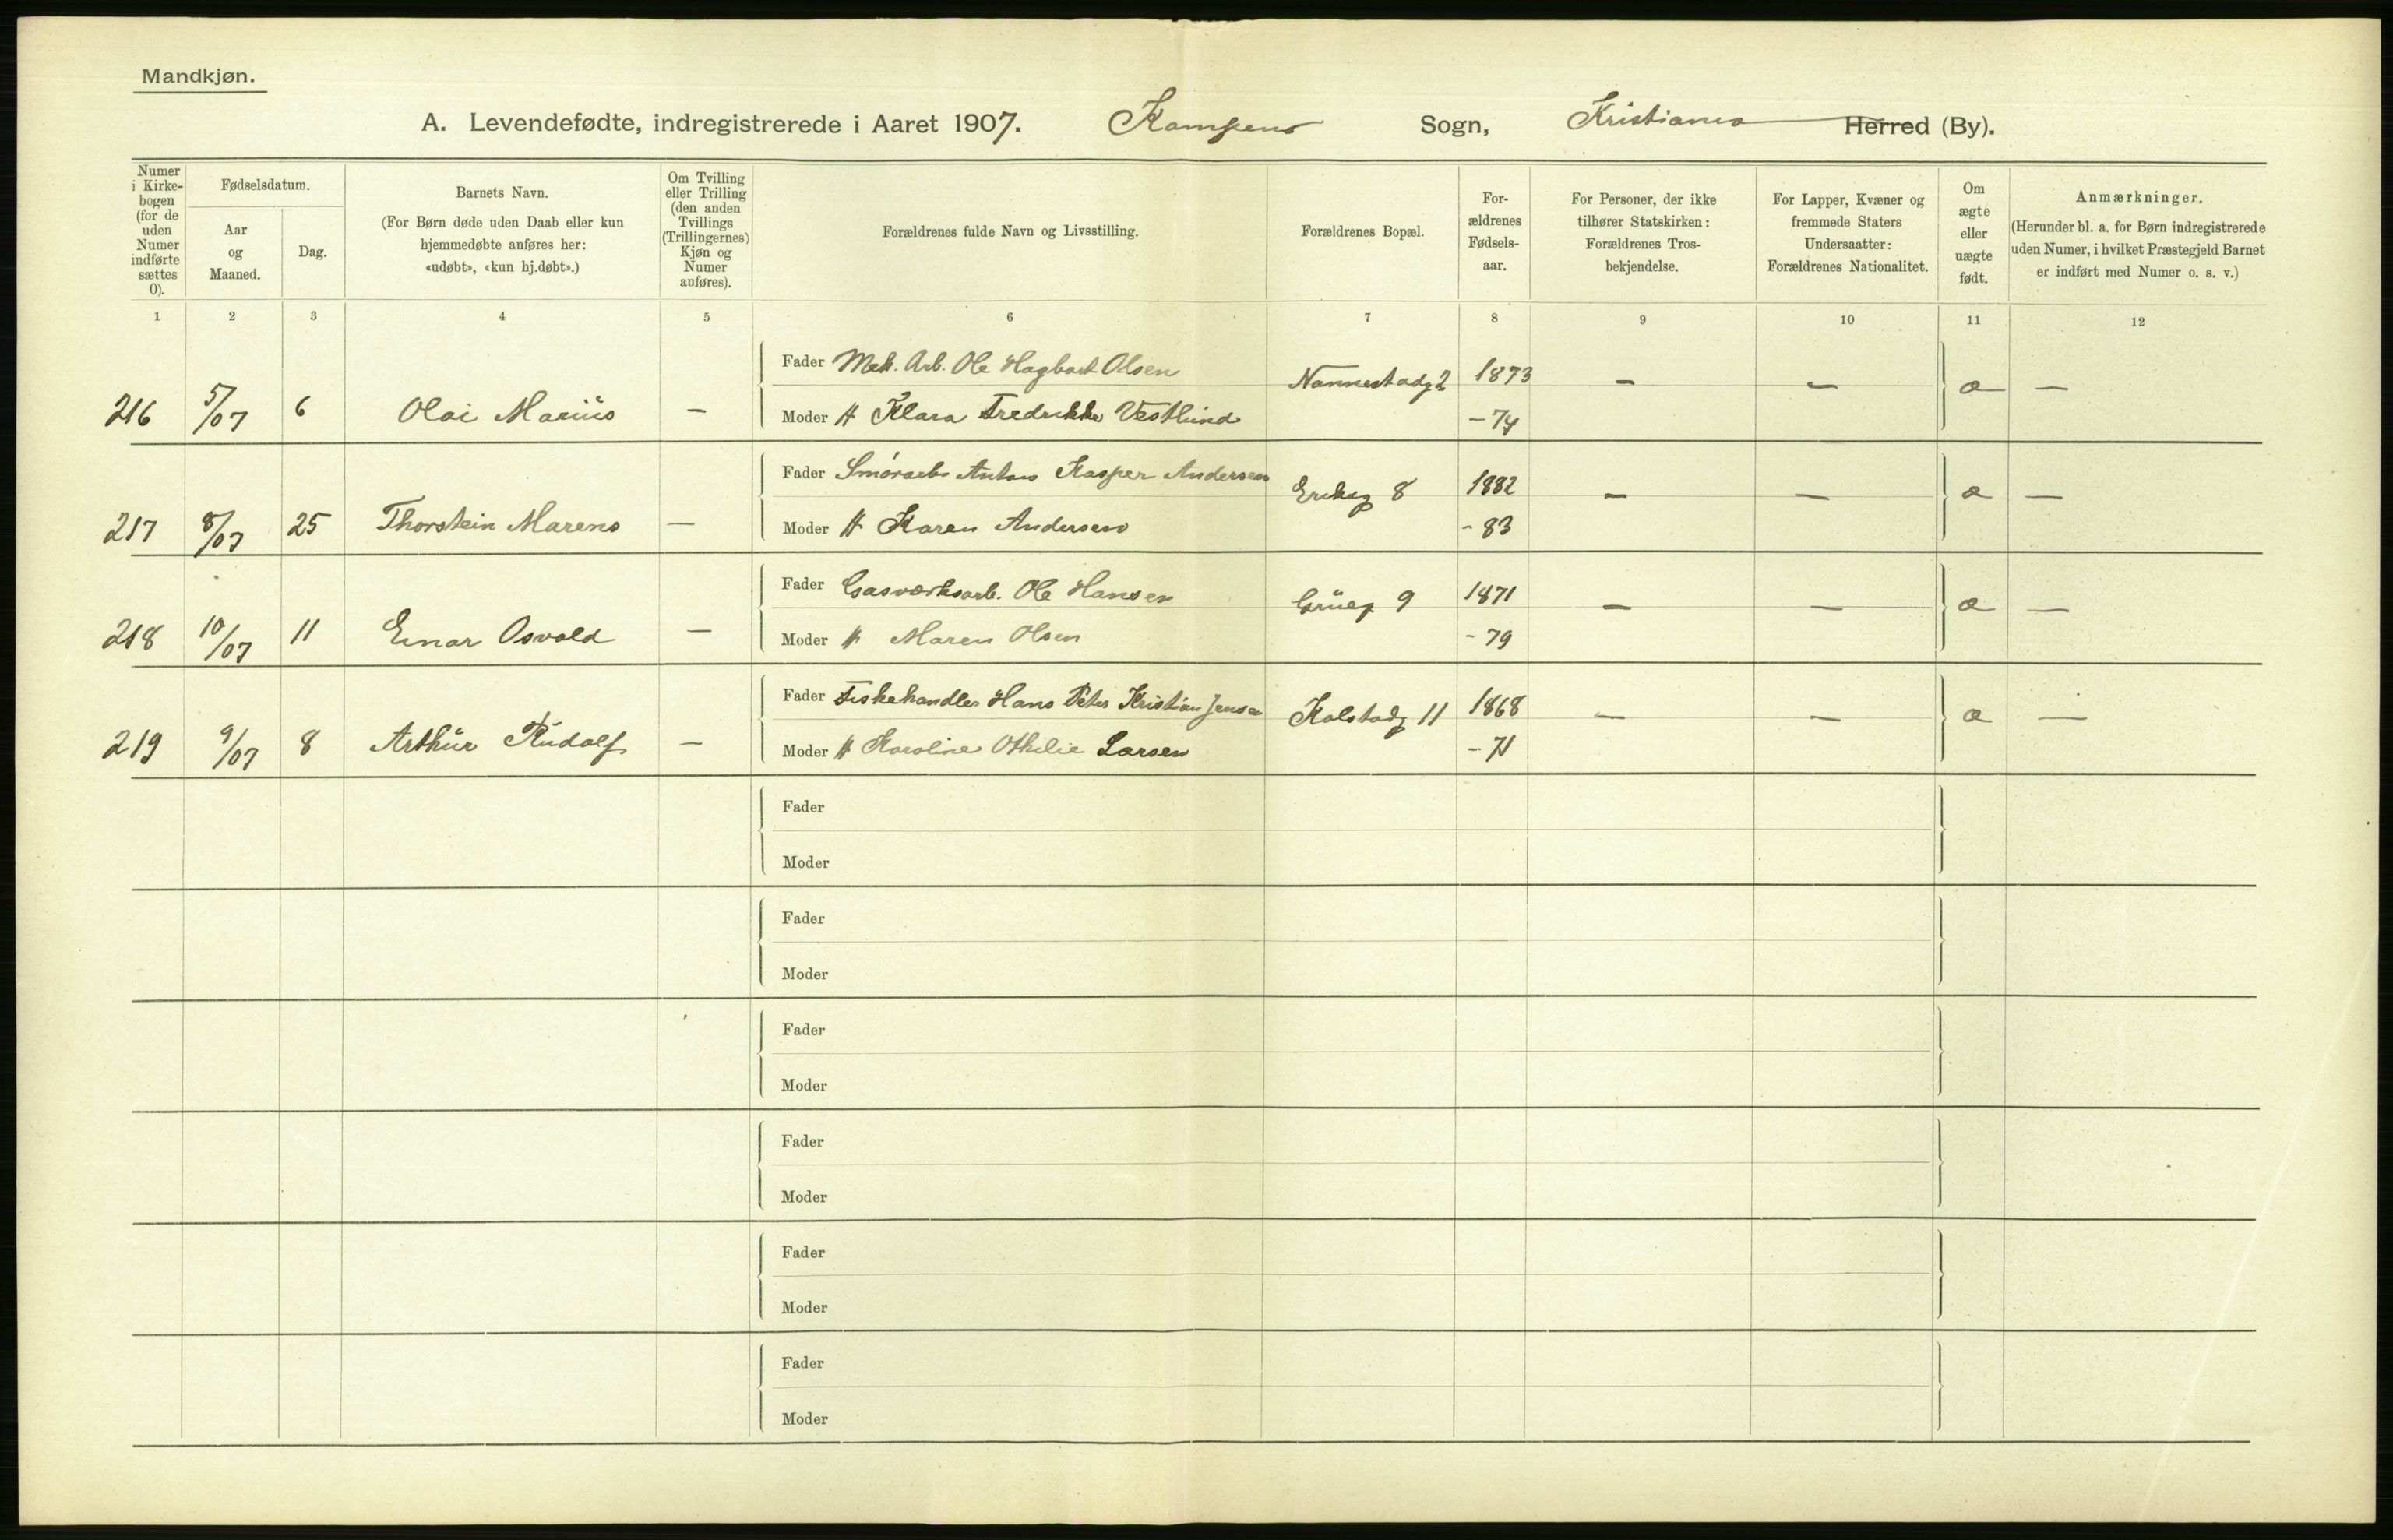 Mandkjøn.
A. Levendefødte, indregistrerede i Aaret 1907. Kampens Sogn, Kristiania Herred (By).
Numer i Kirkebogen (for de uden Numer indførte sættes 0).
Fødselsdatum.
Aar og Maaned.
Dag.
Barnets Navn.
(For Børn døde uden Daab eller kun hjemmedøbte anføres her: «udøbt», «kun hj.døbt».)
Om Tvilling eller Trilling (den anden Tvillings (Trillingernes) Kjøn og Numer anføres).
Forældrenes fulde Navn og Livsstilling.
Forældrenes Bopæl.
Forældrenes Fødselsaar.
For Personer, der ikke tilhører Statskirken: Forældrenes Trosbekjendelse.
For Lapper, Kvæner og fremmede Staters Undersaatter: Forældrenes Nationalitet.
Om ægte eller uægte født.
Anmærkninger.
(Herunder bl. a. for Børn indregistrerede uden Numer, i hvilket Præstegjeld Barnet er indført med Numer o. s. v.)
1 2 3 4 5 6 7 8 9 10 11 12
Fader Mek. Arb. Ole Hagbart Olsen Nannestadg 2 1873 — — a —
216 5/07 6 Olai Marius — Moder H Klara Fredrikke Vestlund - 74
Fader Smørarb. Anton Kasper Andersen Eriksg 8 1882 — — a —
217 8/07 25 Thorstein Marens — Moder H Karen Andersen - 83
Fader Gasværksarb. Ole Hansen Grüeg 9 1871 — — a —
218 10/07 11 Einar Osvald — Moder H Maren Olsen - 79
Fader Fiskehandler Hans Peter Kristian Jensen Kolstadg 11 1868 — — a —
219 9/07 8 Arthur Rudolf — Moder H Karoline Othilie Larsen - 71
Fader
Moder
Fader
Moder
Fader
Moder
Fader
Moder
Fader
Moder
Fader
Moder